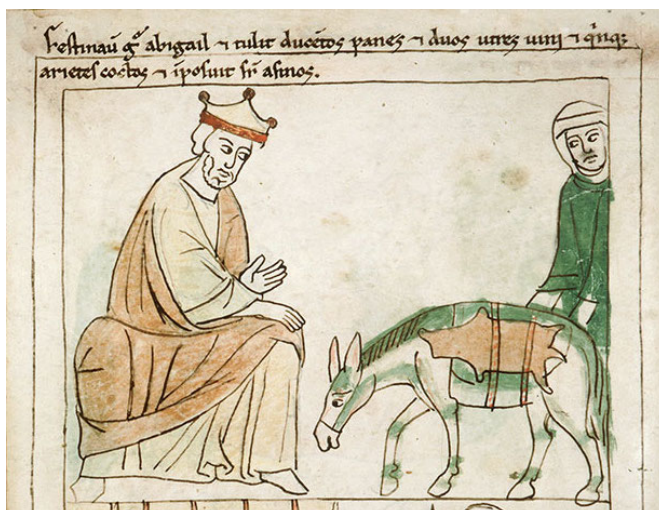 Festinavit gͥ abigail ⁊ tulit ducẽtos panes ⁊ duos utres uini ⁊ qͥnqꝫ
arietes coctos ⁊ ĩposuit sr̃ asinos.